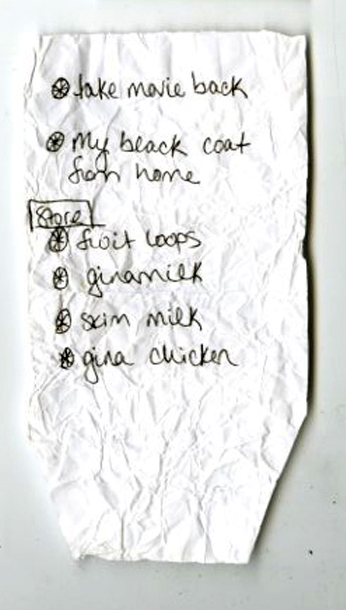 take movie back
My black coat
from home
Store
fruit loops
gina milk
skim milk
gina chicken